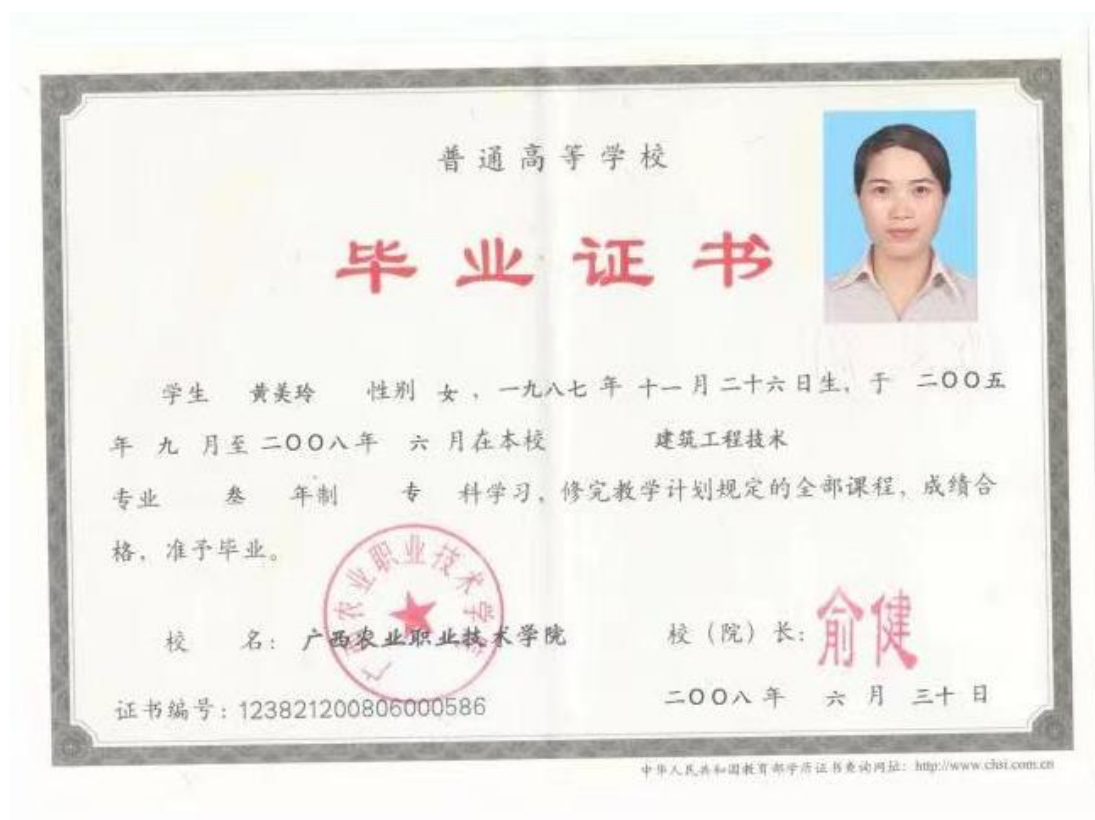 普通高等学校
毕业证书
学生 黄美玲 性别 女，一九八七年 十一月二十六日生，于 二〇〇五
年 九 月至二〇〇八年 六 月在本校 建筑工程技术
专业 叁 年制 专 科学习，修完教学计划规定的全部课程，成绩合
格，准予毕业。
广西农业职业技术学院
校 名：广西农业职业技术学院 校（院）长：俞健
证书编号：123821200806000586 二〇〇八年 六 月 三十 日
中华人民共和国教育部学历证书查询网址：http://www.chsi.com.cn